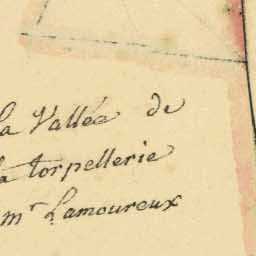 la Vallée de
la torpellerie
mr Lamoureux